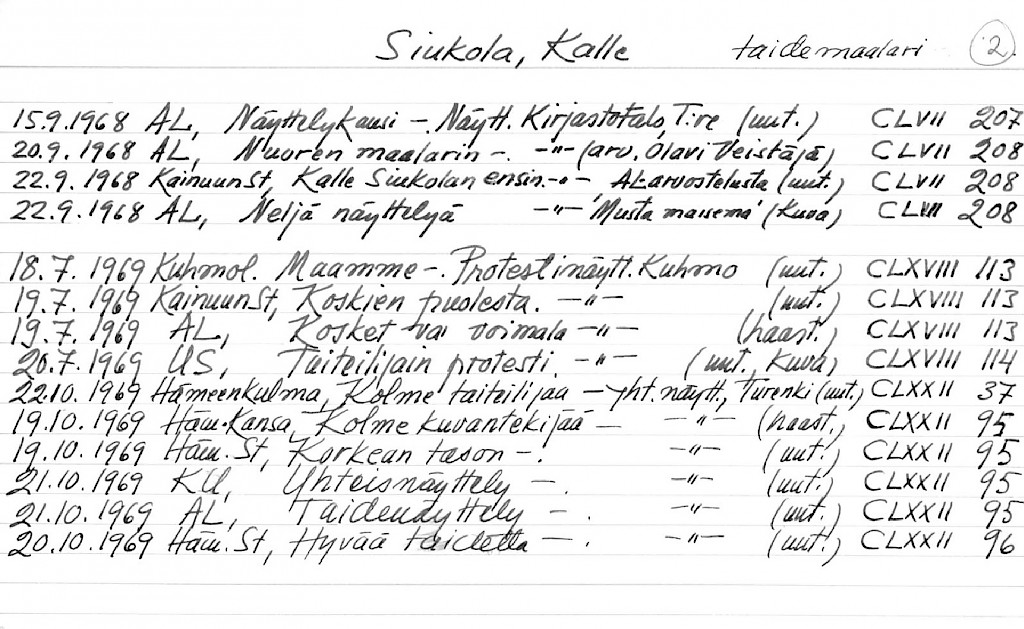 Siukola, Kalle taidemaalari 2.
15.9.1968 AL, Näyttelykausi -. Näytt. Kirjastotalo, T:re (uut.) CLVII 207
20.9.1968 AL, Nuoren maalarin -. -"- (arv. Olavi Veistäjä) CLVII 208
22.9.1968 KainuunSt, Kalle Siukolan ensin. -"-, AL-arvostelusta (uut.) CLVII 208
22.9.1968 AL, Neljä näyttelyä -"- 'Musta maisema' (kuva) CLVII 208
18.7.1969 Kuhmol. Maamme -. Protestinäytt. Kuhmo (uut.) CLXVIII 113
19.7.1969 KainuunSt, Koskien puolesta. -"- (uut.) CLXVIII 113
19.7.1969 AL, Kosket vai voimala -"- (haast.) CLXVIII 113
20.7.1969 US, Taiteilijain protesti. -"- (uut., kuva) CLXVIII 114
22.10.1969 Hämeenkulma, Kolme taiteilijaa - yht. näytt., Turenki (uut.) CLXXII 37
19.10.1969 Häm.Kansa, Kolme kuvantekijää - -"- (haast.) CLXXII 95
19.10.1969 Häm.St, Korkean tason -. -"- (uut.) CLXXII 95
21.10.1969 KU, Yhteisnäyttely -. -"- (uut.) CLXXII 95
21.10.1969 AL, Taidenäyttely -. -"- (uut.) CLXXII 95
20.10.1969 Häm.St, Hyvää taidetta -. -"- (uut.) CLXXII 96